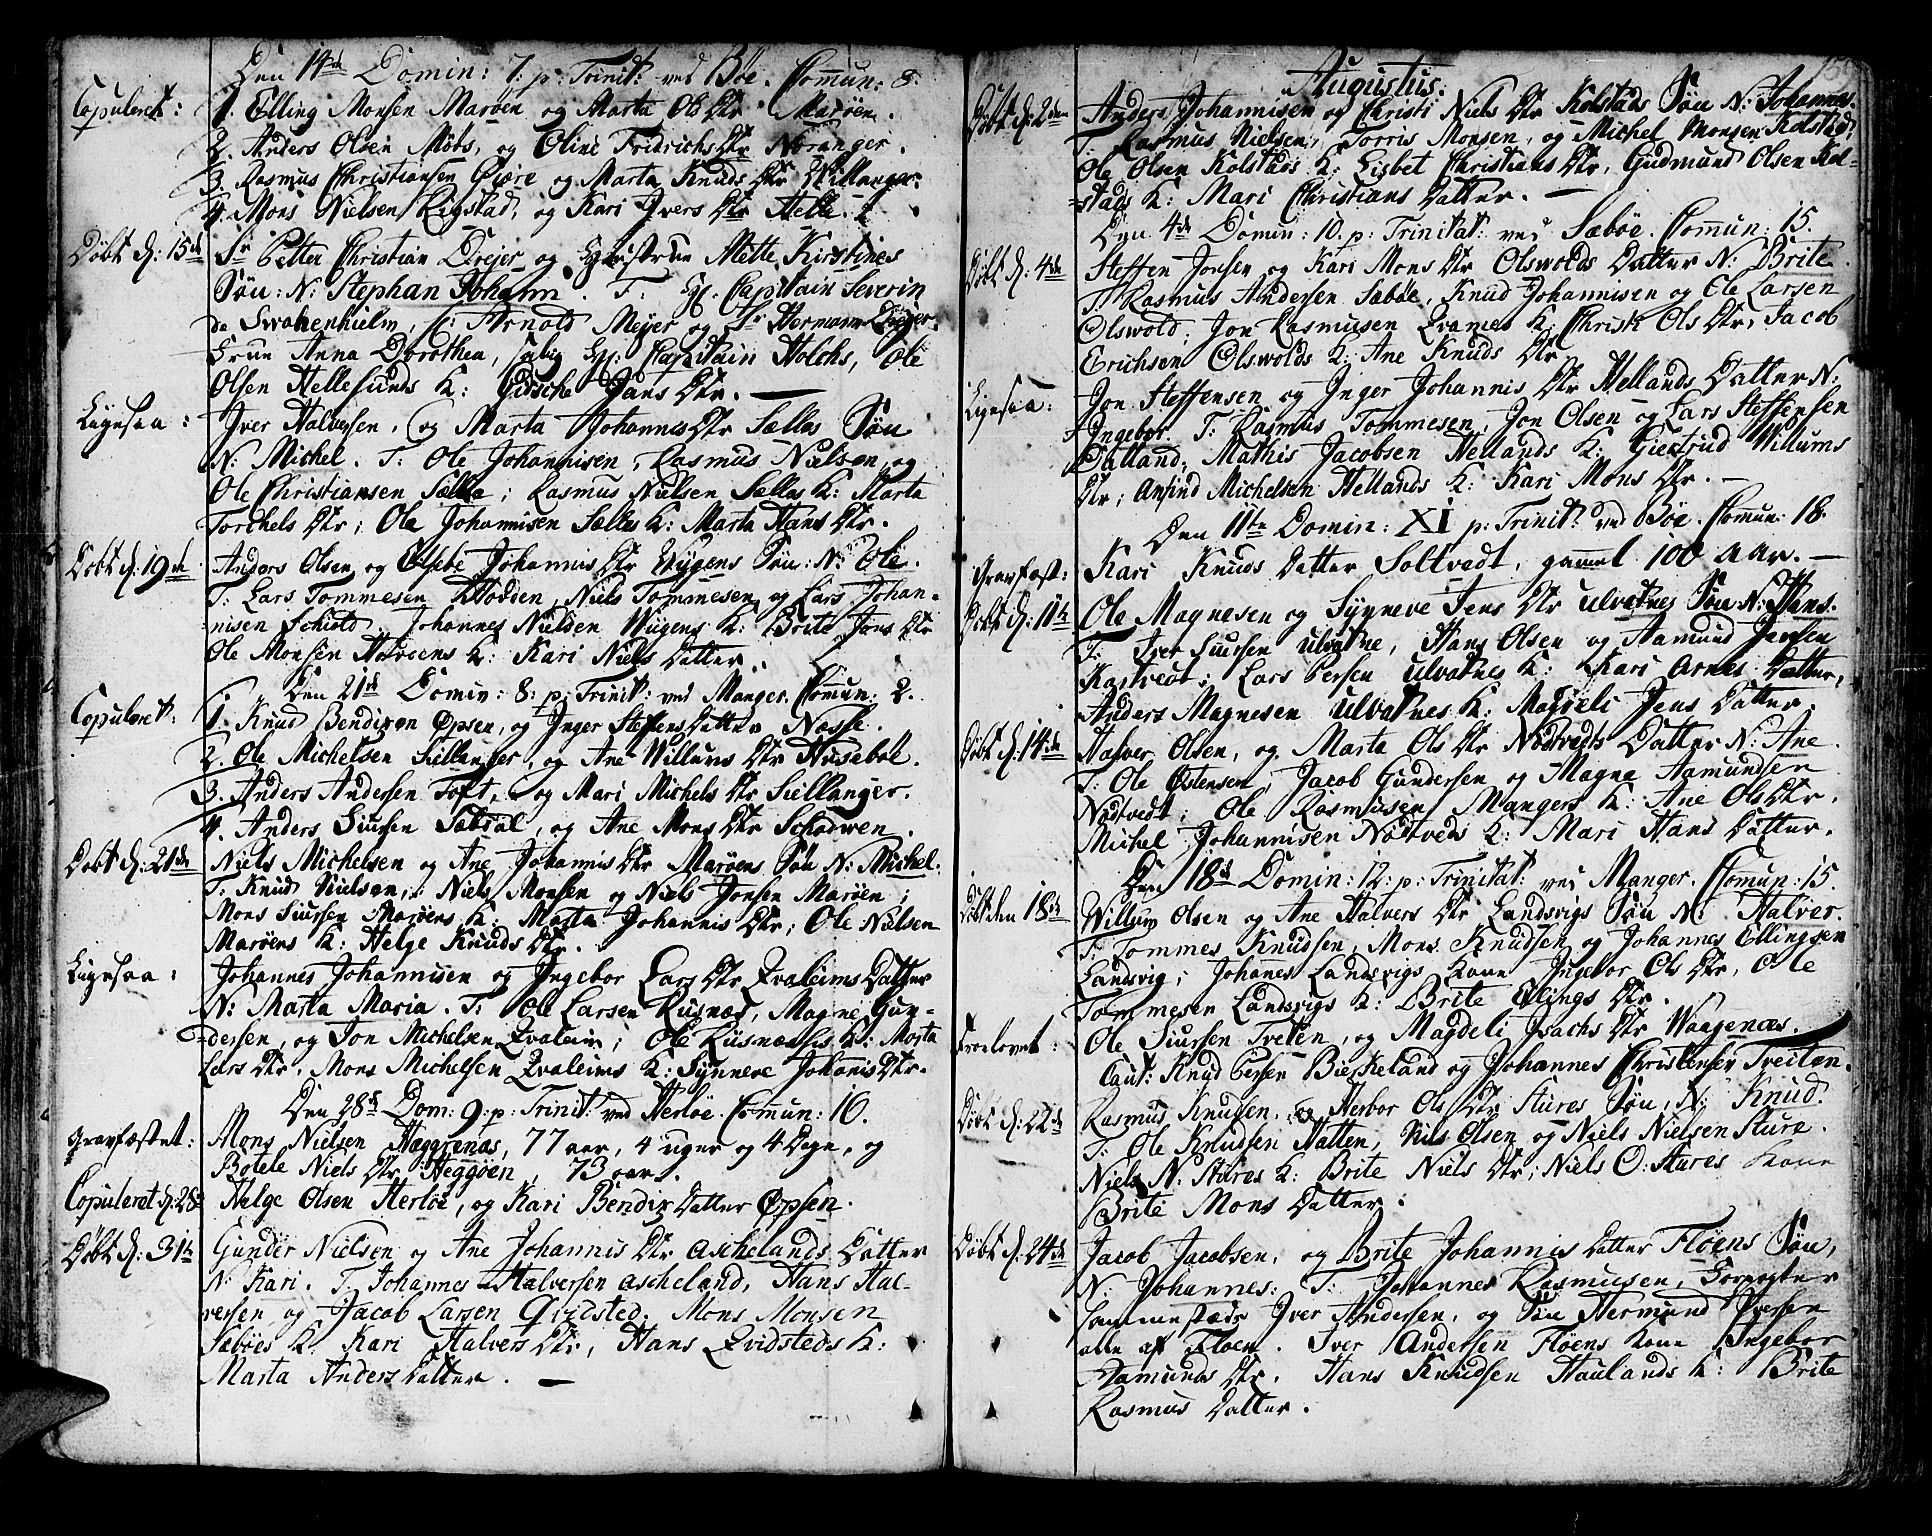 Den 14de Domin: 7: p: Trinit: ved Bøe. Comun: 8.
Copuleret: 1. Elling Monsen Marøen og Marta Ols Dtr Marøen.
2. Anders Olsen Møts, og Oline Fridrichs Dtr Noranger.
3. Rasmus Christiansen Giøre og Marta Knuds Dtr Willanger.
4. Mons Nielsen Rigstad, og Kari Ivers Dtr Helle.
Døbt d: 15de Sr Petter Christian Drejer og Hustrue Mette Kirstines
Søn: N: Stephan Johann. T: Hr Capitain Severin
de Svanenhielm, Arnold Meyer og Sr Herman Dreyer.
Frue Anna Dorothea, salig Hr: Capitain Holchs, Ole
Olsen Hellesunds K: Gidsche Jans Dtr. —
Ligesaa: Iver Halversen, og Marta Johannis Dtr Sælles Søn
N: Michel. T: Ole Johannisen, Rasmus Nielsen og
Ole Christiansen Sælle; Rasmus Nielsen Sælles K: Marta
Torchels Dtr; Ole Johannisen Sælles K: Marta Hans Dtr.
Døbt d: 19de Anders Olsen og Johannis Dtr Søn: N: Ole.
T: Lars Tommesen Hodden, Niels Tommesen og Lars Johan-
nisen Schiold. Johannes K: Brite Jans Dtr
Ole Monsen K: Kari Niels Datter.
Den 21de Domin: 8: p: Trinit: ved Manger. Comun: 2.
Copuleret: 1. Knud Bendixen Øpsen, og Inger Steffens Datter Nesse.
2. Ole Michelsen Sellanger, og Ane Willums Dtr Husebøe.
3. Anders Andersen Toft, og Mari Michels Dtr Sellanger.
4. Anders Siursen Sætdal, og Ane Mons Dtr Schodwen.
Døbt d: 21de Niels Michelsen og Ane Johannis Dtr Marøens Søn N: Michel.
T: Knud Nielsen, Niels Monsen og Niels Jonsen Marøen;
Mons Siursen Marøens K: Marta Johannis Dtr; Ole Nielsen
Marøens K: Helge Knuds Dtr.
Ligesaa: Johannes Johannisen og Ingebor Lars Dtr Qvaleims Datter
N: Marta Maria. T: Ole Larsen Rusnæs, Magne Gun-
dersen, og Jon Michelsen Qvaleim; Ole Rusnæsses K: Marta
Lars Dtr. Mons Michelsen Qvaleims K: Synneve Johanis Dtr.
Den 28de Dom: 9: p: Trinit: ved Herløe. Comun: 16.
Gravfæstet: Mons Nielsen Heggrenæs, 77 aar, 4 uger og 4 Dage, og
Botele Niels Dtr Heggøen, 73 aar.
Copuleret d: 28: Helge Olsen Herløe, og Kari Bendix Datter Øpsen.
Døbt d: 31te Gunder Nielsen og Ane Johannis Dtr Aschelands Datter
N: Kari. T: Johannes Halversen Ascheland, Hans Hal-
versen og Jacob Larsen Qvidsted. Mons Monsen
Sæbøes K: Kari Halvers Dtr, Hans Qvidsteds K:
Marta Anders Datter. —
Augustus.
Døbt d: 2den Anders Johannisen og Christi Niels Dtr Kolstads Søn N: Johannes.
T: Rasmus Nielsen, Torris Monsen, og Michel Monsen Kolstad,
Ole Olsen Kolstads K: Lisbet Christians Dtr, Gudmund Olsen Kol-
stads K: Mari Christians Datter. —
Den 4de Domin: 10. p: Trinitat: ved Sæbøe. Comun: 15.
Døbt d: 4de Steffen Jonsen og Kari Mons Dtr Olswolds Datter N: Brite.
T: Rasmus Andersen Sæbøe, Knud Johannisen og Ole Larsen
Olswold; Jon Rasmusen Qvames K: Christi Ols Dtr, Jacob
Erichsen Olswolds K: Ane Knuds Dtr.
Ligesaa: Jon Steffensen og Inger Johannis Dtr Hellands Datter N:
Ingebor. T: Rasmus Tommesen, Jon Olsen og Lars Steffensen
Dalland, Mathis Jacobsen Hellands K: Giertrud Willums
Dtr; Anfind Michelsen Hellands K: Kari Mons Dtr. —
Den 11te Domin: XI p: Trinit: ved Bøe. Comun: 18.
Gravfæst: Kari Knuds Datter Soltvedt, gammel 100 Aar. —
Døbt d: 11te Ole Magnesen og Synneve Jens Dtr Ulvatnes Søn N: Hans.
T: Iver Siursen Ulvatne, Hans Olsen og Aamund Jensen
Kastvedt; Lars Persen Ulvatnes K: Kari Arnes Datter,
Anders Magnesen Ulvatnes K: Magdeli Jens Datter.
Døbt d: 14de Halver Olsen, og Marta Ols Dtr Nødtvedts Datter N: Ane.
T: Ole Østensen, Jacob Gundersen og Magne Aamundsen
Nødtvedt; Ole Rasmusen Mangers K: Ane Ols Dtr.
Michel Johannisen Nødtveds K: Mari Hans Datter.
Den 18de Domin: 12: p: Trinitat: ved Manger. Comun: 15.
Døbt den 18de Willum Olsen og Ane Halvers Dtr Landsvigs Søn N: Halver.
T: Tommes Knudsen, Mons Knudsen og Johannes Ellingsen
Landsvig; Johanes Landsvigs Kone Ingebor Ols Dtr, Ole
Tommesen Landsvigs K: Brite Ellings Dtr.
Troelovet: Ole Siursen Tveten, og Magdeli Isachs Dtr Waagenæs.
Caut: Knud Persen Birkeland og Johannes Christensen Tveiten.
Døbt d: 22de Rasmus Knudsen, og Herbor Ols Dtr Stures Søn, N: Knud.
T: Ole Knudsen Hatten, Nils Olsen og Niels Nielsen Sture.
Niels N: Stures K: Brite Niels Dtr; Niels O: Stures Kone
Brite Mons Datter.
Døbt d: 24de Jacob Jacobsen, og Brite Johannis Datter Fløens Søn,
N: Johannes: T: Johannes Rasmusen, Forpagter
sammesteds Iver Andersen, og Søn Hermund Iversen
alle af Fløen. Iver Andersen Fløens Kone Ingebor
Aamunds Dtr. Hans Knudsen Haulands K: Brite
Rasmus Datter.